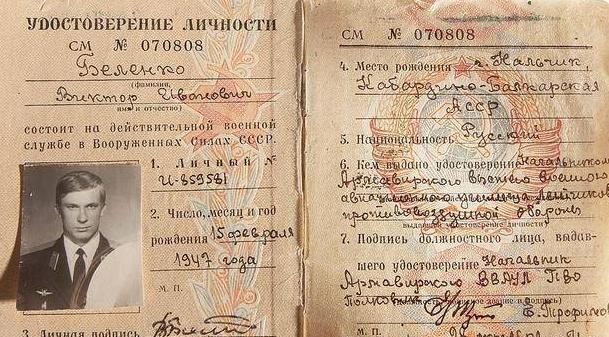 УДОСТОВЕРЕНИЕ ЛИЧНОСТИ
СМ № 070808
Беленко
(фамилия,
Виктор Иванович
имя и отчество)
состоит на действительной военной
службе в Вооруженных Силах СССР.
1. Личный №
И-859581
2. Число, месяц и год
рождения 15 февраля
1947 года
М. П.
3. Личная подпись
СМ № 070808
4. Место рождения г. Нальчик,
Кабардино-Балкарская
АССР
5. Национальность Русский
6. Кем выдано удостоверение Начальником
Армавирского высшего военного
авиационного училища летчиков
противовоздушной обороны
выдавшей удостоверение личности)
7. Подпись должностного лица, выдав-
шего удостоверение Начальник
Армавирского ВВАУЛ ПВО
Полковник Е. Трофимов
звание и подпись)
М. П.